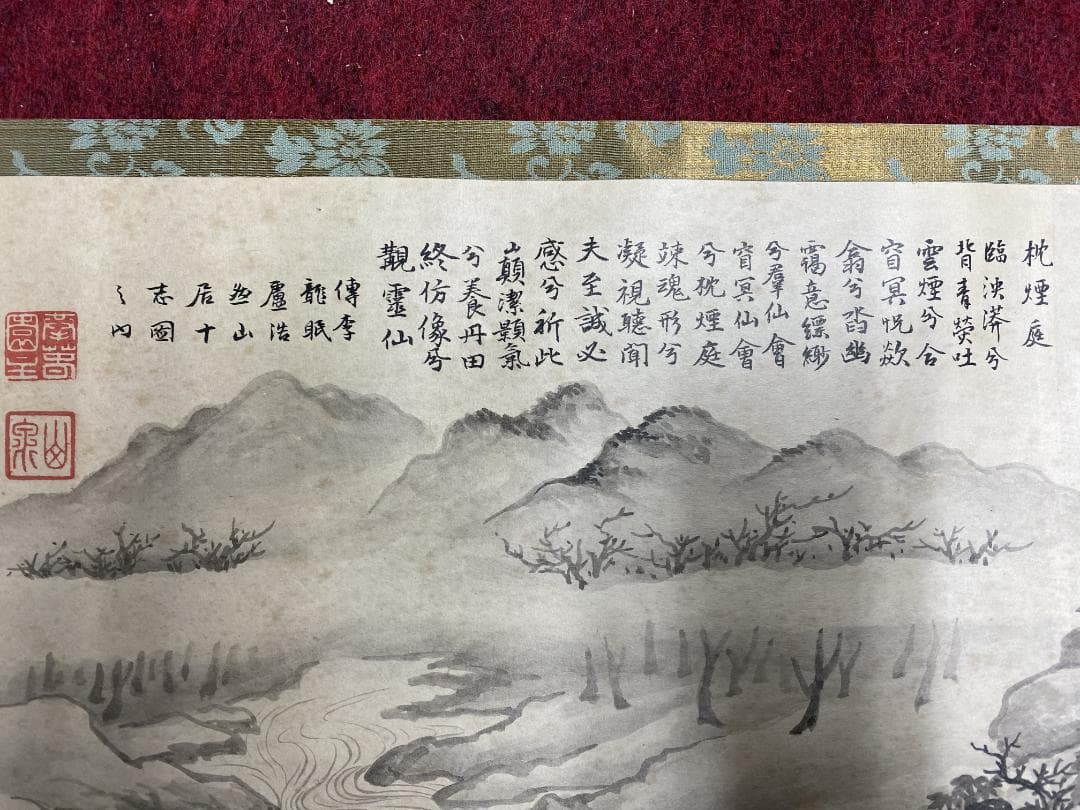 枕煙庭
臨泱漭兮
背青熒吐
雲煙兮合
窅冥怳欻
翕兮沓幽
靄意縹緲
兮羣仙會
窅冥仙會
兮枕煙庭
竦魂形兮
凝視聽聞
夫至誠必
感兮祈此
巔潔顥氣
兮養丹田
終仿像兮
覯靈仙
傳李
龍眠
盧浩
然山
居十
志圖
之內
山泉